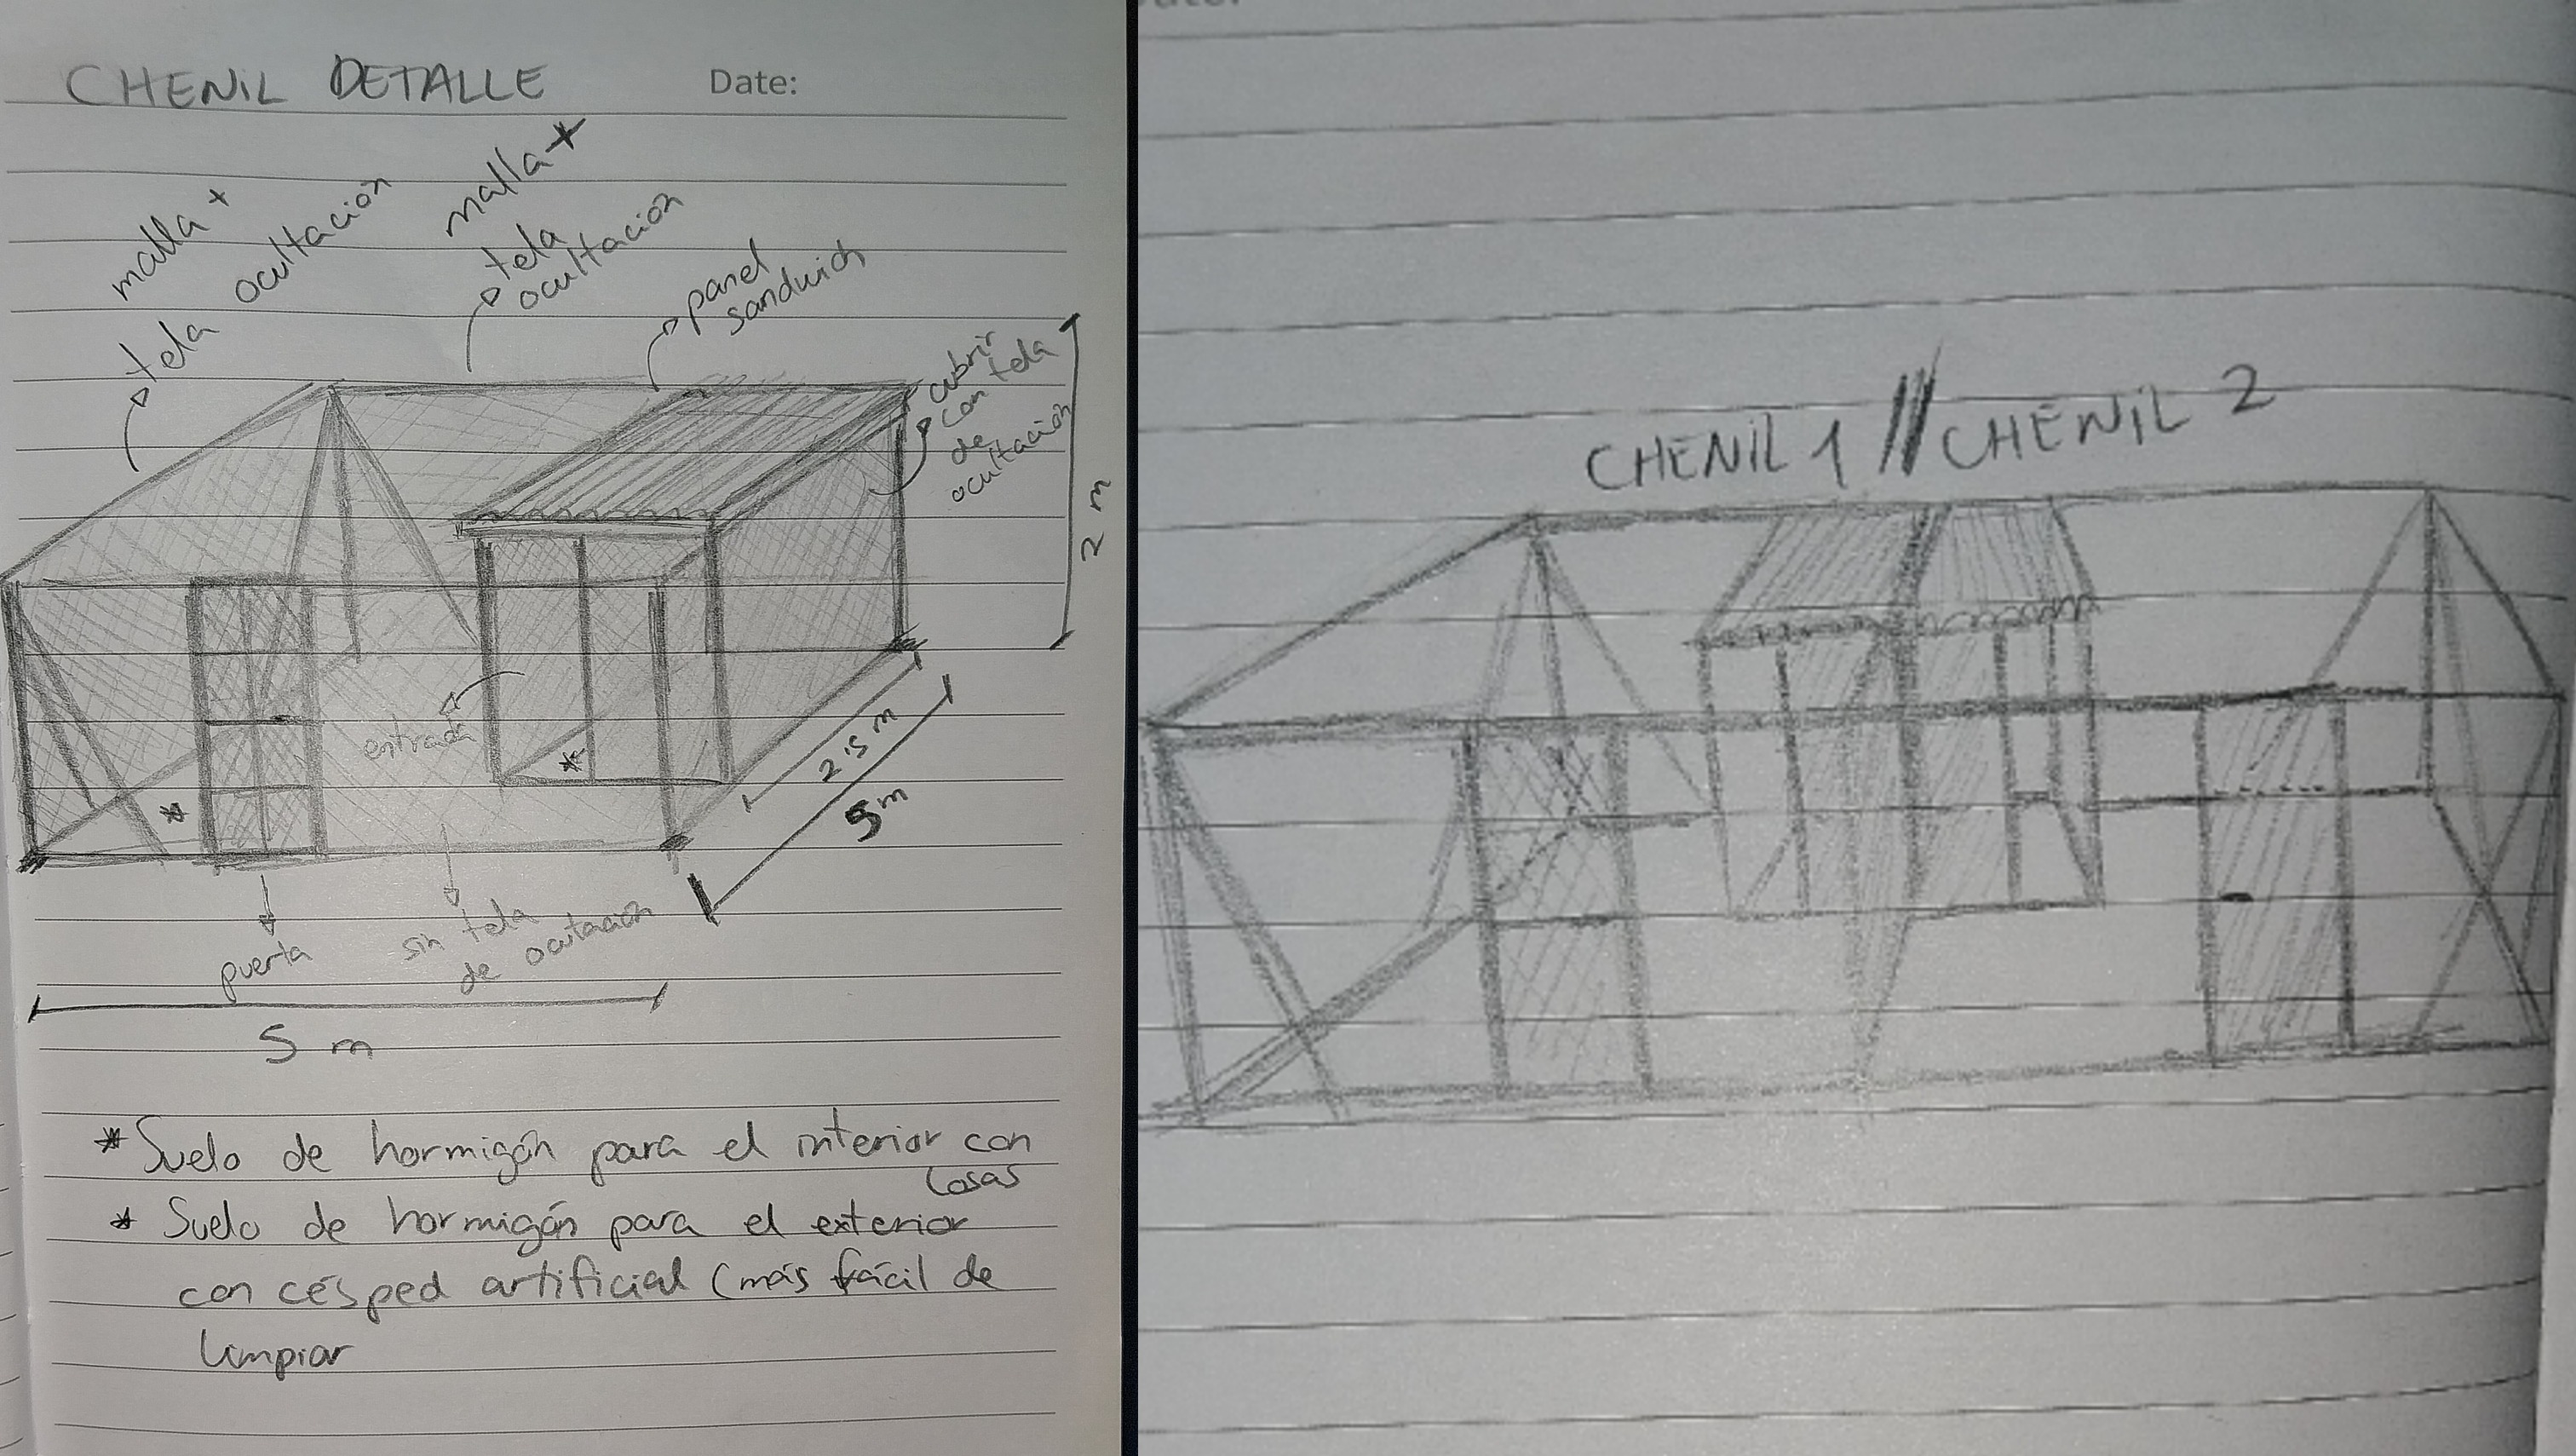 CHENIL DETALLE
Date:
malla +
tela ocultación
malla +
tela
ocultación
panel
sandwich
cubrir
con tela
de
ocultación
2 m
entrada
*
*
2'5 m
5 m
puerta
sin tela
de ocultación
5 m
* Suelo de hormigón para el interior con
losas
* Suelo de hormigón para el exterior
con césped artificial (más fácil de
limpiar
CHENIL 1 // CHENIL 2